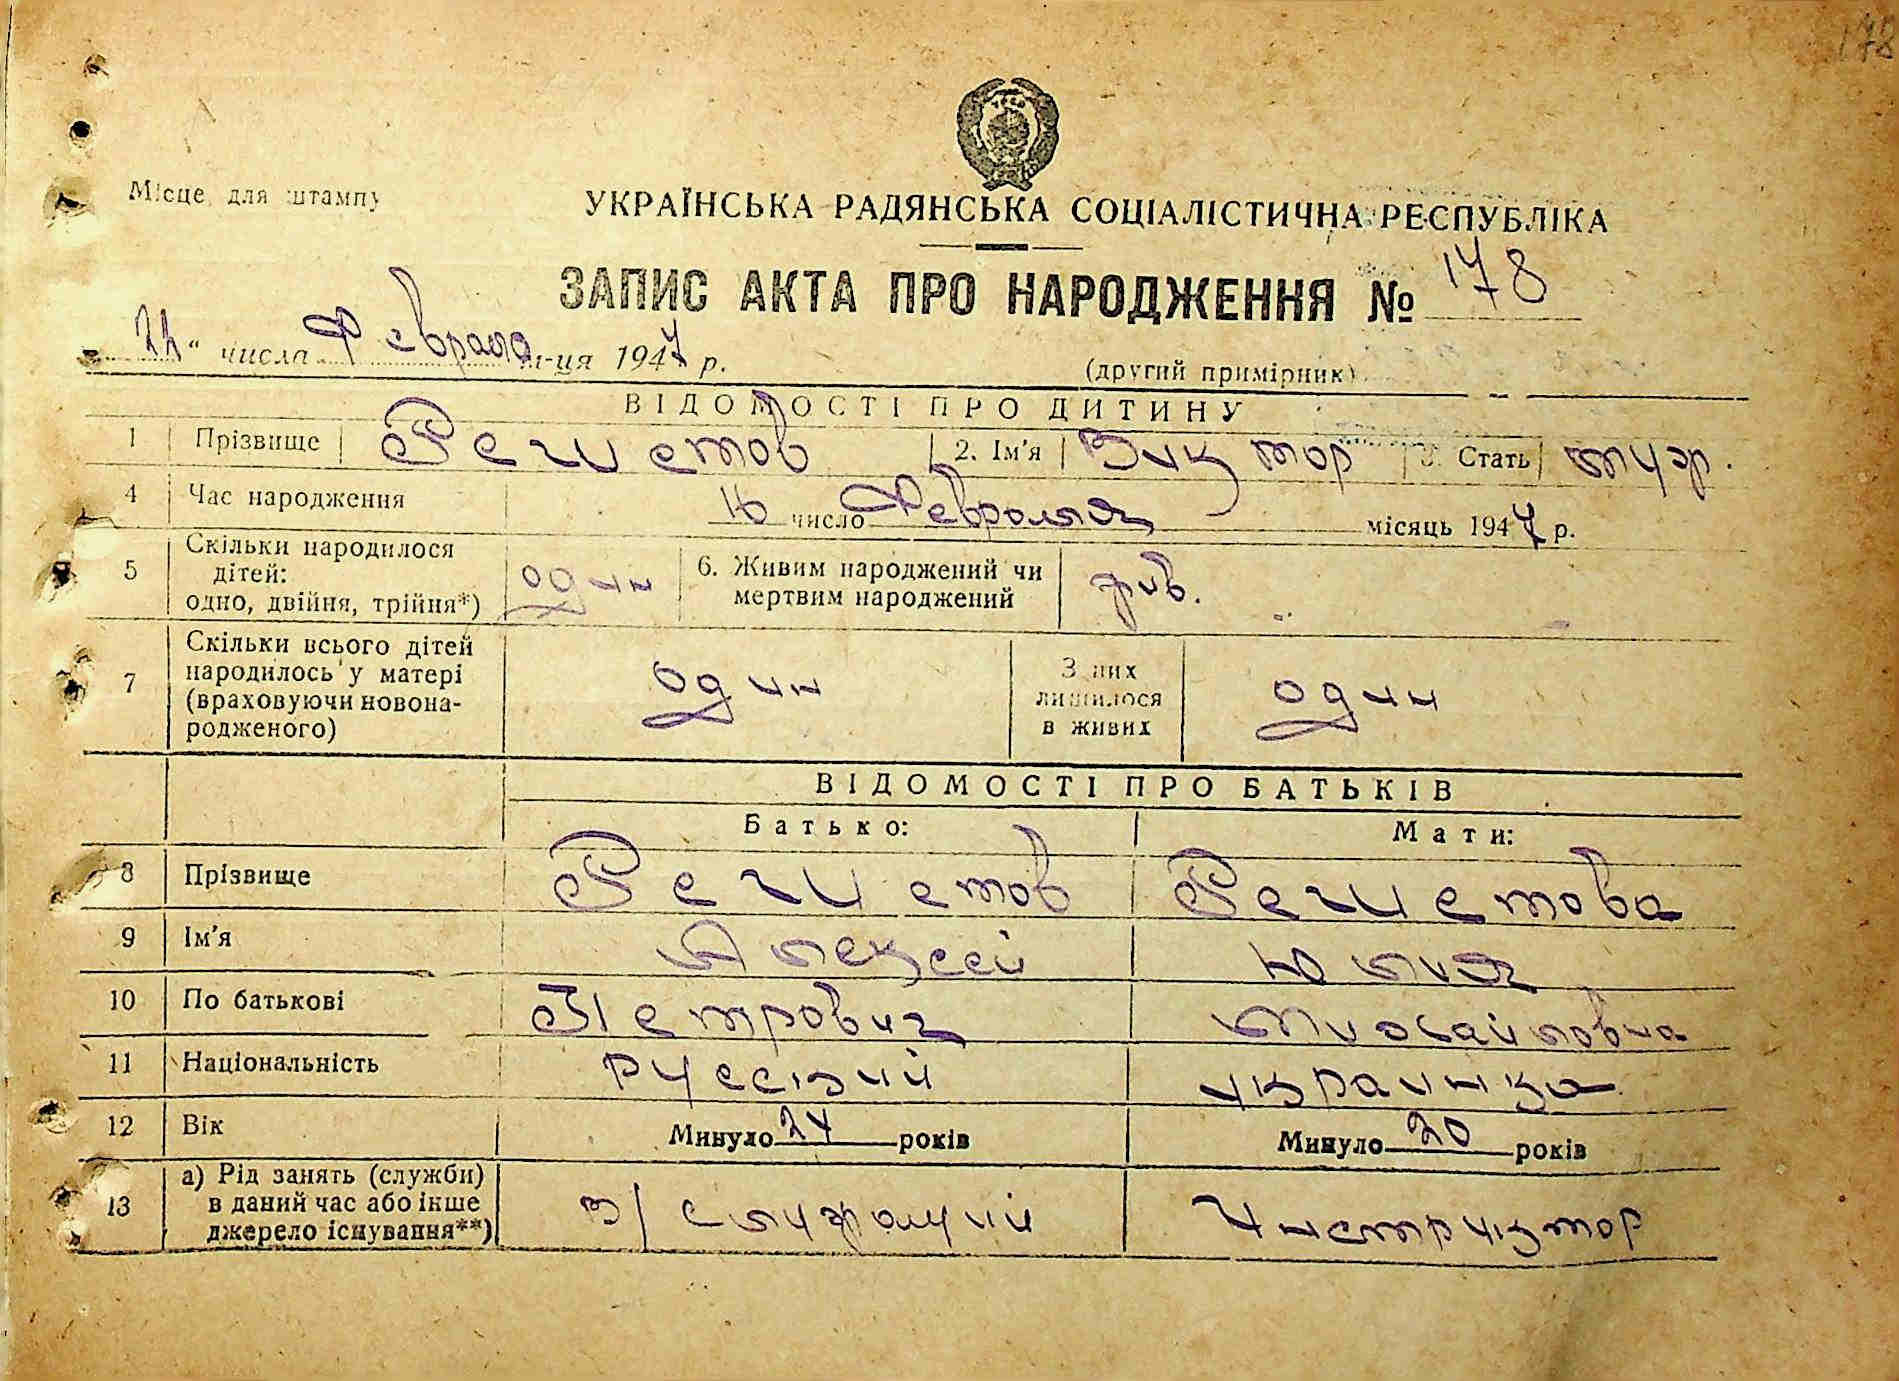 178
Місце для штампу
УКРАЇНСЬКА РАДЯНСЬКА СОЦІАЛІСТИЧНА РЕСПУБЛІКА
ЗАПИС АКТА ПРО НАРОДЖЕННЯ № 178
22" числа Февраля м-ця 1947 р.
(другий примірник)
ВІДОМОСТІ ПРО ДИТИНУ
1 Прізвище Решетов 2. Ім'я Виктор 3. Стать муж.
4 Час народження 16 число Февраля місяць 1947 р.
5 Скільки народилося дітей: одно, двійня, трійня*) один 6. Живим народжений чи мертвим народжений жив.
7 Скільки всього дітей народилось у матері (враховуючи новонародженого) один З них лишилося в живих один
ВІДОМОСТІ ПРО БАТЬКІВ
Батько: Мати:
8 Прізвище Решетов Решетова
9 Ім'я Алексей Юлия
10 По батькові Петрович Михайловна
11 Національність русский украинка
12 Вік Минуло 24 років Минуло 20 років
13 а) Рід занять (служби) в даний час або інше джерело існування**) в/служащий Инструктор